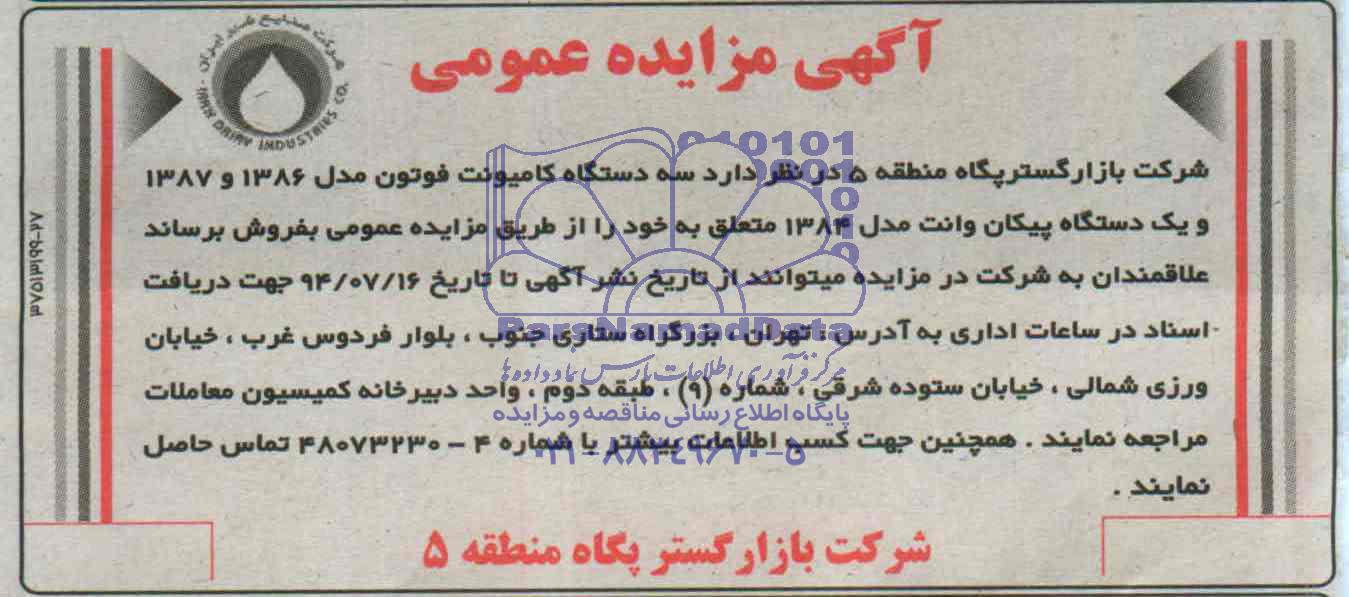 آگهی مزایده عمومی
شرکت صنایع شیر ایران
IRAN DAIRY INDUSTRIES CO.
شرکت بازارگسترپگاه منطقه ۵ در نظر دارد سه دستگاه کامیونت فوتون مدل ۱۳۸۶ و ۱۳۸۷
و یک دستگاه پیکان وانت مدل ۱۳۸۴ متعلق به خود را از طریق مزایده عمومی بفروش برساند
علاقمندان به شرکت در مزایده میتوانند از تاریخ نشر آگهی تا تاریخ ۹۴/۰۷/۱۶ جهت دریافت
اسناد در ساعات اداری به آدرس : تهران ، بزرگراه ستاری جنوب ، بلوار فردوس غرب ، خیابان
ورزی شمالی ، خیابان ستوده شرقی ، شماره (۹) ، طبقه دوم ، واحد دبیرخانه کمیسیون معاملات
مراجعه نمایند . همچنین جهت کسب اطلاعات بیشتر با شماره ۴ – ۴۸۰۷۳۲۳۰ تماس حاصل
نمایند .
شرکت بازارگستر پگاه منطقه ۵
ParsNamadData
مرکز فرآوری اطلاعات پارس نماد داده ها
پایگاه اطلاع رسانی مناقصه و مزایده
۰۲۱-۸۸۳۴۹۶۷۰-۵